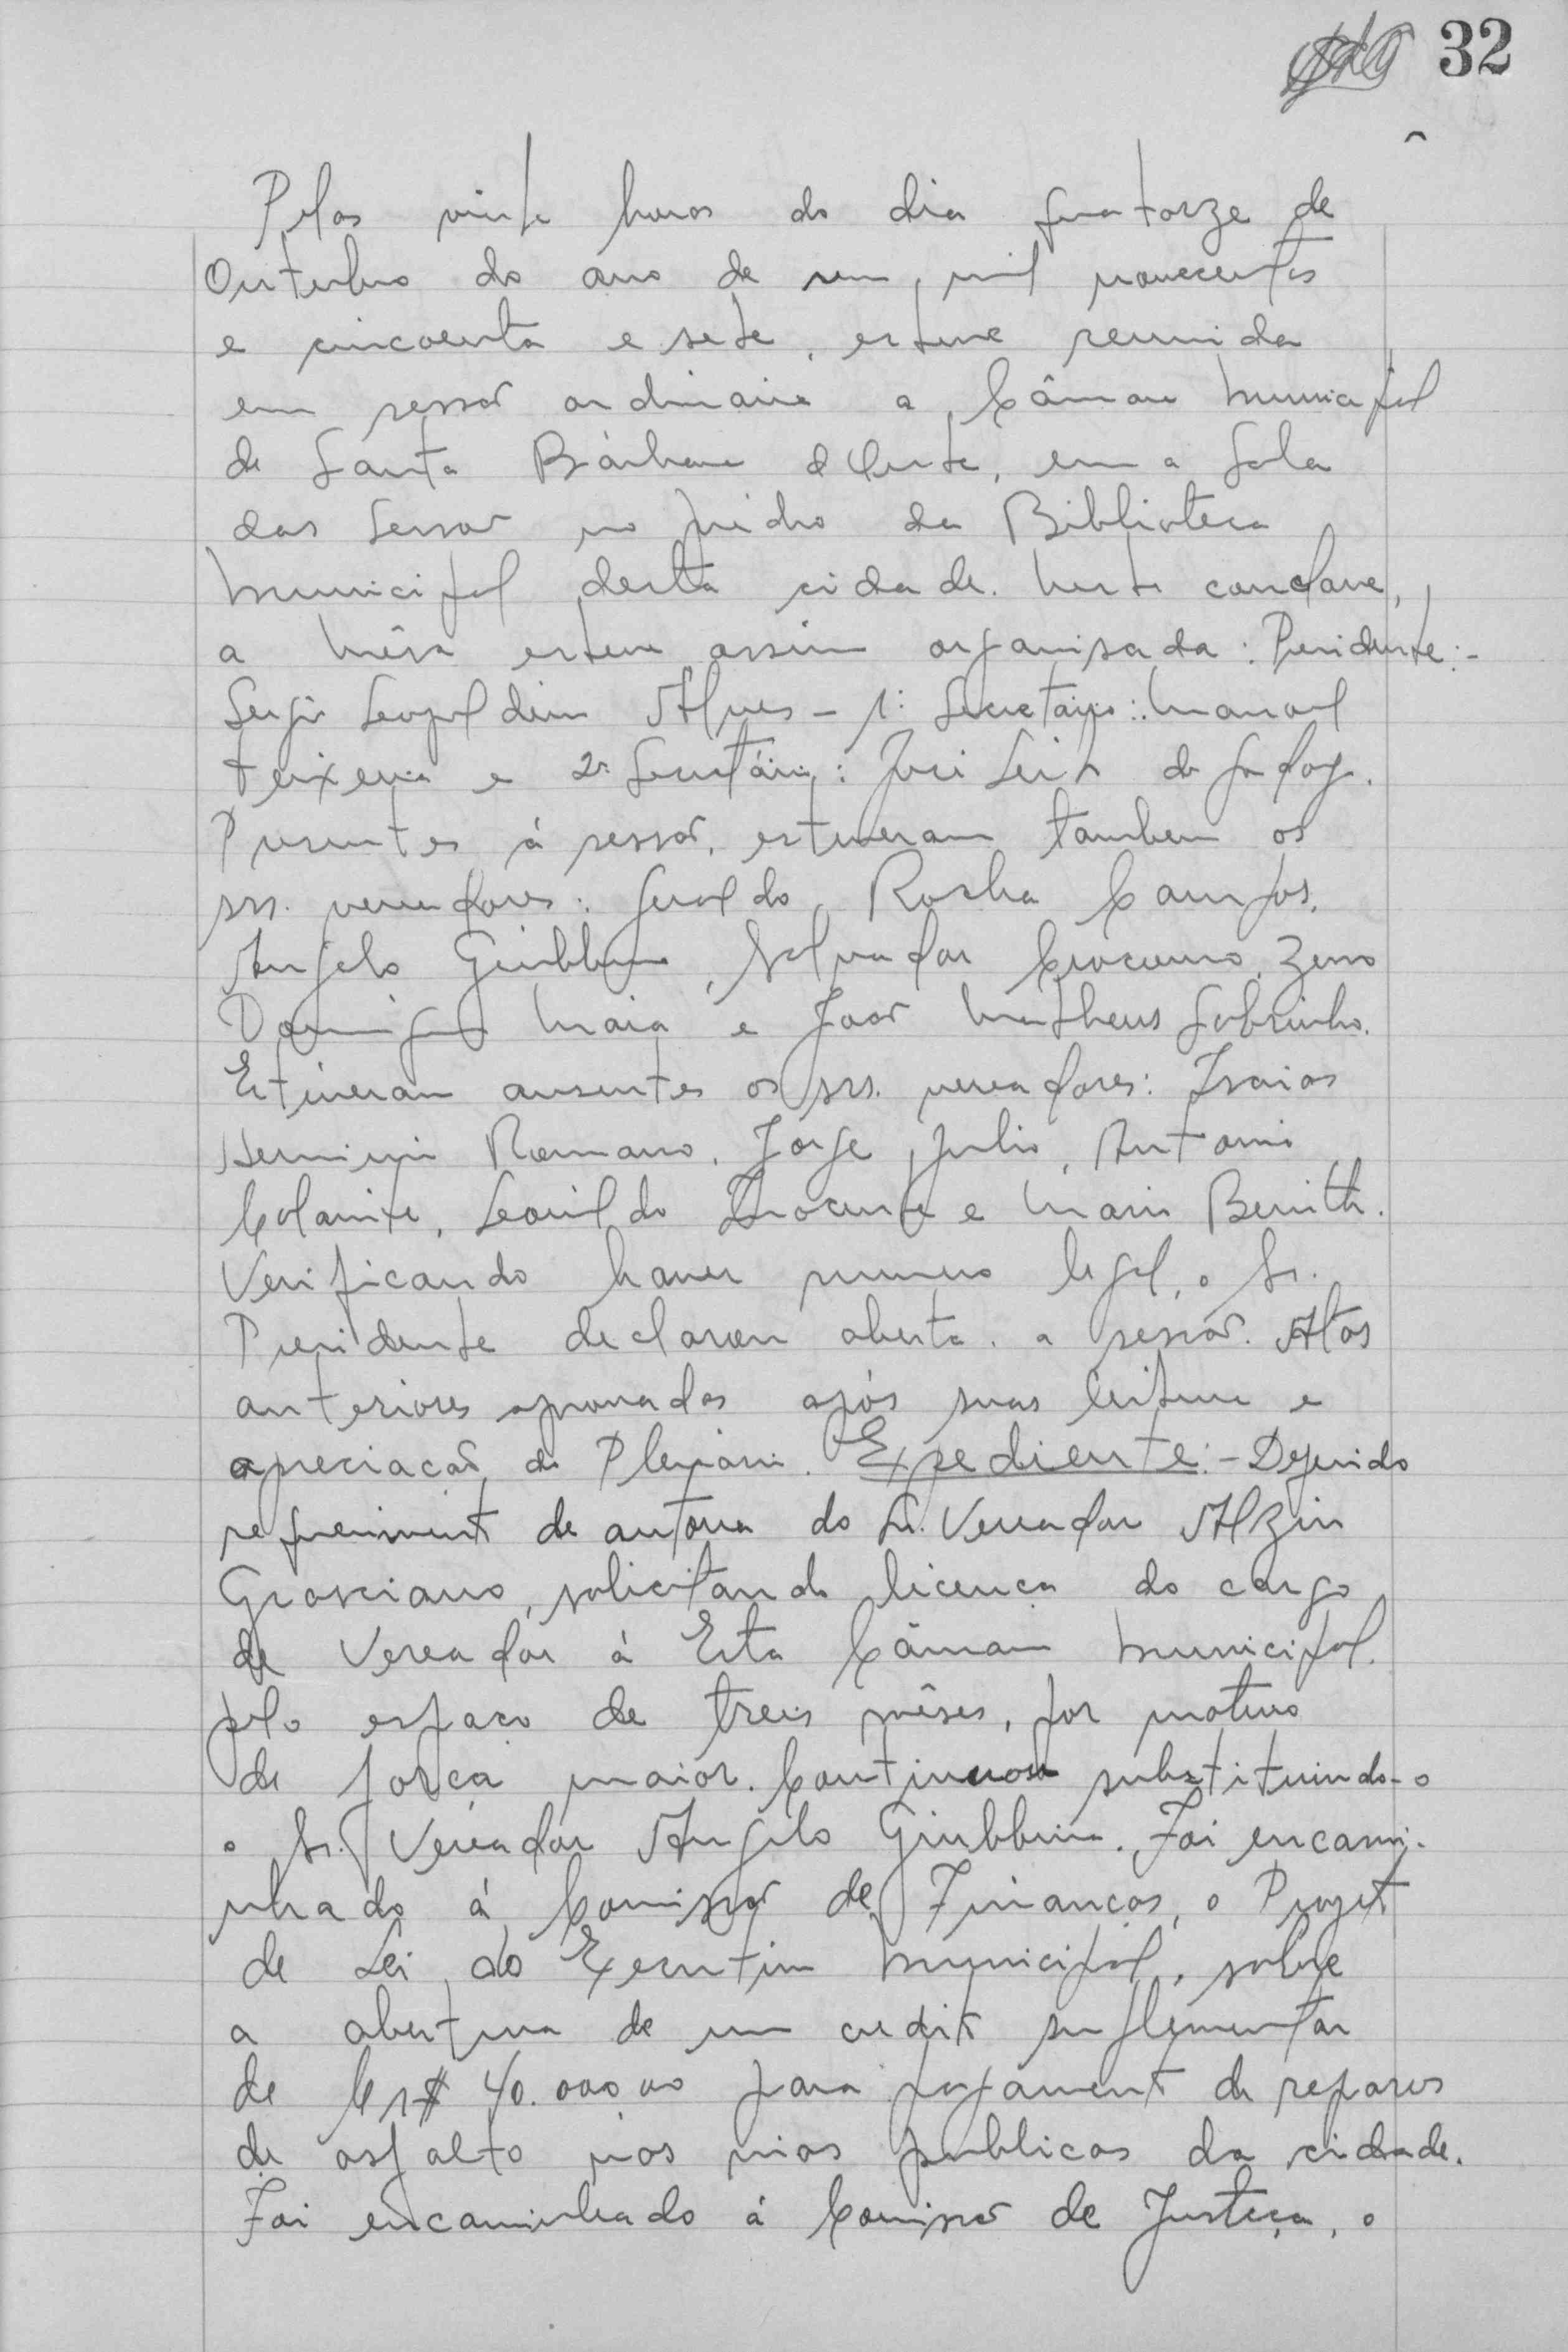 32
Pelas vinte horas do dia quatorze de
Outubro do ano de um mil novecentos
e cincoenta e sete, esteve reunida
em sessão ordinaria a Câmara Municipal
de Santa Bárbara d'Oeste, em a Sala
das Sessões no predio da Biblioteca
Municipal desta cidade. Neste conclave,
a Mêsa esteve assim organisada: Presidente:-
Sergio Leopoldino Alves - 1º Secretário: Manoel
Teixeira e 2º Secretário: José Leite de Godoy.
Presentes á sessão, estiveram tambem os
srs. vereadores: Geraldo Rocha Campos,
Angelo Giubbina, Salvador Crócomo, Zeno
Domingos Maia e João Matheus Sobrinho.
Estiveram ausentes os srs. vereadores: Isaias
Herminio Romano, Jorge Julio, Antonio
Leonildo e Mario
Verificando haver numero legal, o Sr.
Presidente declarou aberta a sessão. Atas
anteriores aprovadas após suas leitura e
apreciação do Plenario. Expediente:- Deferido
requerimento de autoria do Sr. Vereador Alzin
Grasciano, solicitando licença do cargo
de Vereador á Esta Câmara Municipal.
pelo espaço de treis mêses, por motivo
de força maior. Continuou substituindo-o
o Sr. Vereador Angelo Giubbina. Foi encami-
nhado á Comissão de Finanças, o Projeto
de Lei do Executivo Municipal, sobre
a abertura de um credito suplementar
de Cr$ 40.000,00 para pagamento de reparos
de asfalto nas vias publicas da cidade.
Foi encaminhado á Comissão de Justiça, o